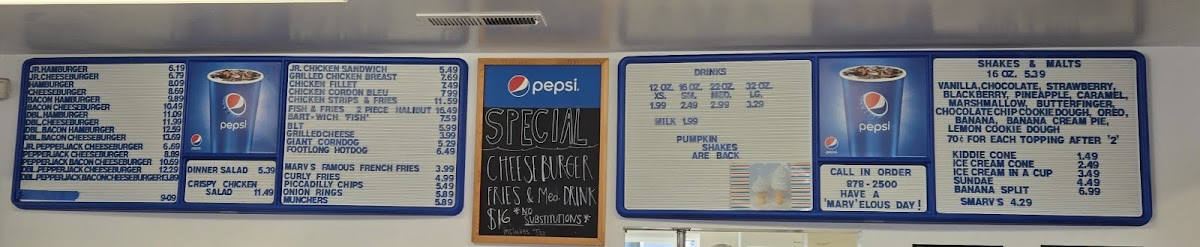 JR. HAMBURGER 6.19
JR. CHEESEBURGER 6.79
HAMBURGER 8.09
CHEESEBURGER 8.69
BACON HAMBURGER 9.89
BACON CHEESEBURGER 10.49
DBL. HAMBURGER 11.09
DBL. CHEESEBURGER 11.99
DBL. BACON HAMBURGER 12.59
DBL. BACON CHEESEBURGER 13.69
JR. PEPPERJACK CHEESEBURGER 6.69
PEPPERJACK CHEESEBURGER 8.89
PEPPERJACK BACON CHEESEBURGER 10.69
DBL. PEPPERJACK CHEESEBURGER 12.29
DBL. PEPPERJACK BACON CHEESEBURGER 13.89
9.09
pepsi
pepsi
DINNER SALAD 5.39
CRISPY CHICKEN
SALAD 11.49
JR. CHICKEN SANDWICH 5.49
GRILLED CHICKEN BREAST 7.69
CHICKEN FILLET 7.49
CHICKEN CORDON BLEU 7.99
CHICKEN STRIPS & FRIES 11.59
FISH & FRIES 2 PIECE HALIBUT 16.49
BART-WICH 'FISH' 7.59
BLT 5.99
GRILLED CHEESE 3.99
GIANT CORNDOG 5.29
FOOTLONG HOTDOG 6.49
MARV'S FAMOUS FRENCH FRIES 3.99
CURLY FRIES 4.99
PICCADILLY CHIPS 5.49
ONION RINGS 5.89
MUNCHERS 5.89
pepsi.
SPECIAL
CHEESEBURGER
FRIES & Med. DRINK
$16 *NO SUBSTITUTIONS*
includes Tax
DRINKS
12 OZ. 16 OZ. 22 OZ. 32 OZ.
XS. SM. MED. LG.
1.99 2.49 2.99 3.29
MILK 1.99
PUMPKIN
SHAKES
ARE BACK
pepsi
pepsi
CALL IN ORDER
878-2500
HAVE A
'MARV'ELOUS DAY!
SHAKES & MALTS
16 OZ. 5.39
VANILLA, CHOCOLATE, STRAWBERRY,
BLACKBERRY, PINEAPPLE, CARAMEL,
MARSHMALLOW, BUTTERFINGER,
CHOCOLATE CHIP COOKIE DOUGH, OREO,
BANANA, BANANA CREAM PIE,
LEMON COOKIE DOUGH
70¢ FOR EACH TOPPING AFTER '2'
KIDDIE CONE 1.49
ICE CREAM CONE 2.49
ICE CREAM IN A CUP 3.49
SUNDAE 4.49
BANANA SPLIT 6.99
SMARV'S 4.29